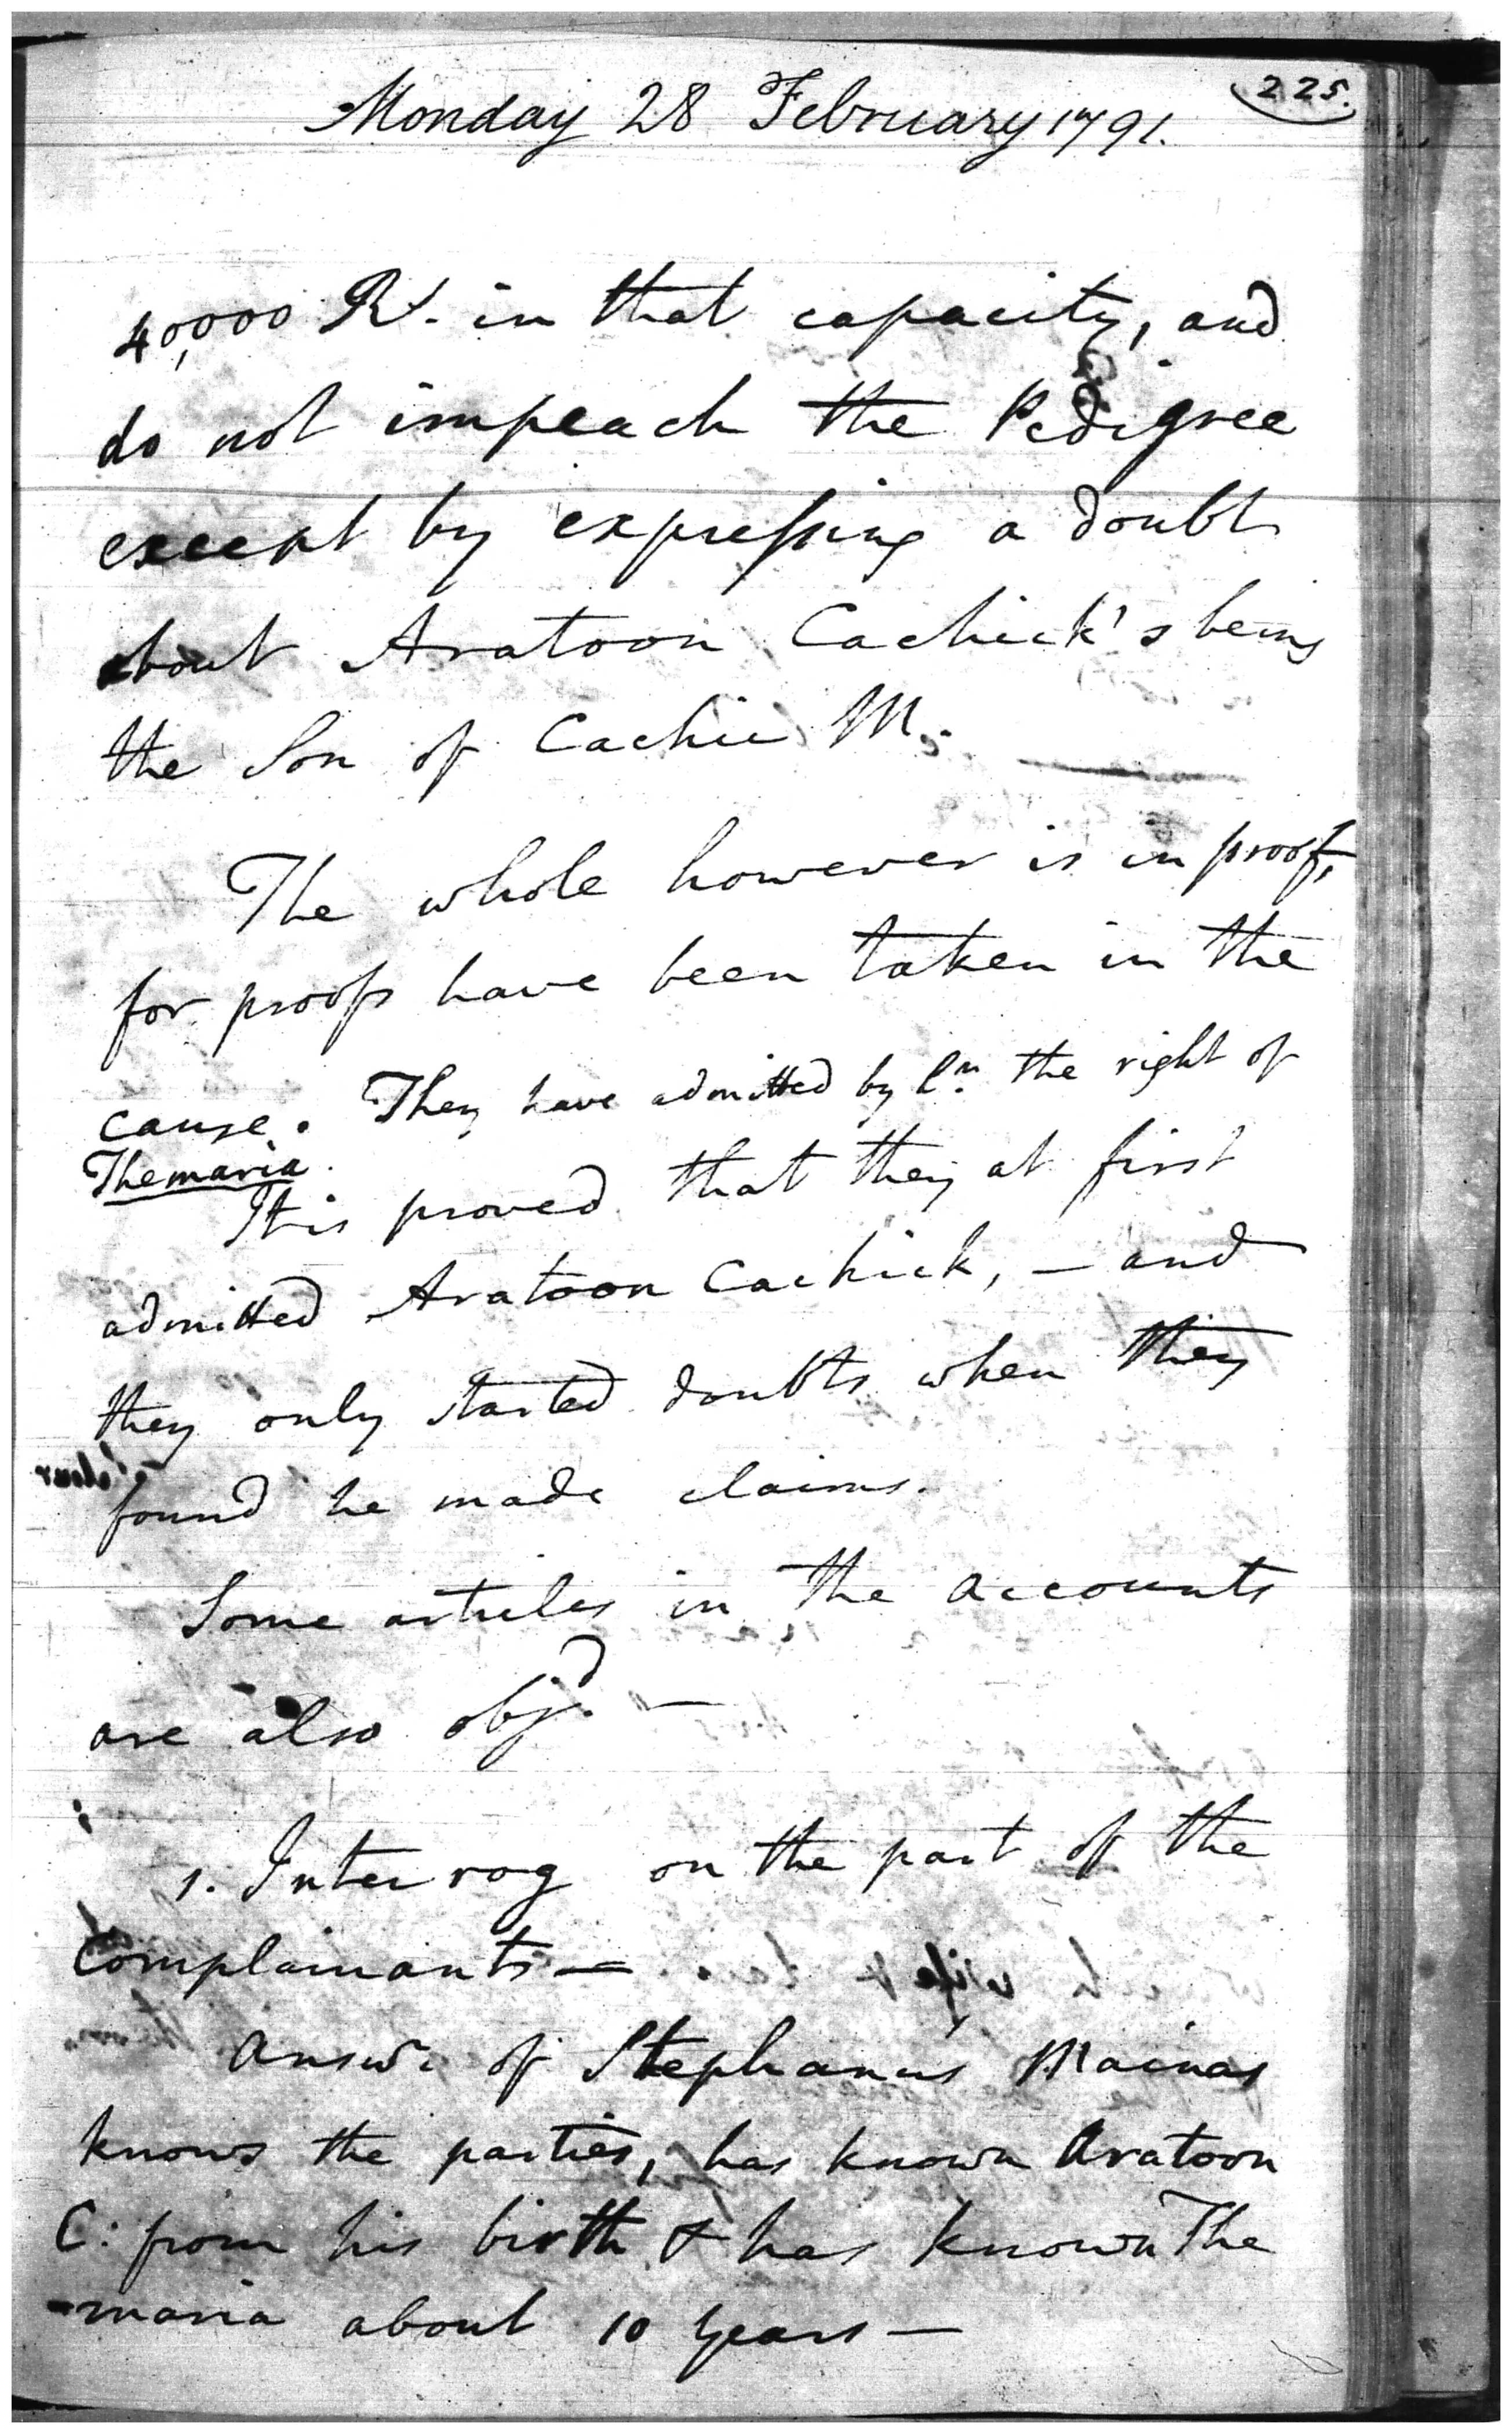 225.
Monday 28 February 1791.
40,000 Rs. in that capacity, and
do not impeach the Pedigree
except by expressing a doubt
about Aratoon Cachick's being
the Son of Cachic M.
The whole however is in proof,
for proofs have been taken in the
cause. They have admitted by the right of
Themaria.
It is proved that they at first
admitted Aratoon Cachick, — and
they only started doubts when they
found he made claims.
Some articles in the accounts
are also objd. —
1. Interrog on the part of the
Complainants —
Answr. of Stephanus Mainas
knows the parties, has known Aratoon
C: from his birth & has known The
-maria about 10 years —